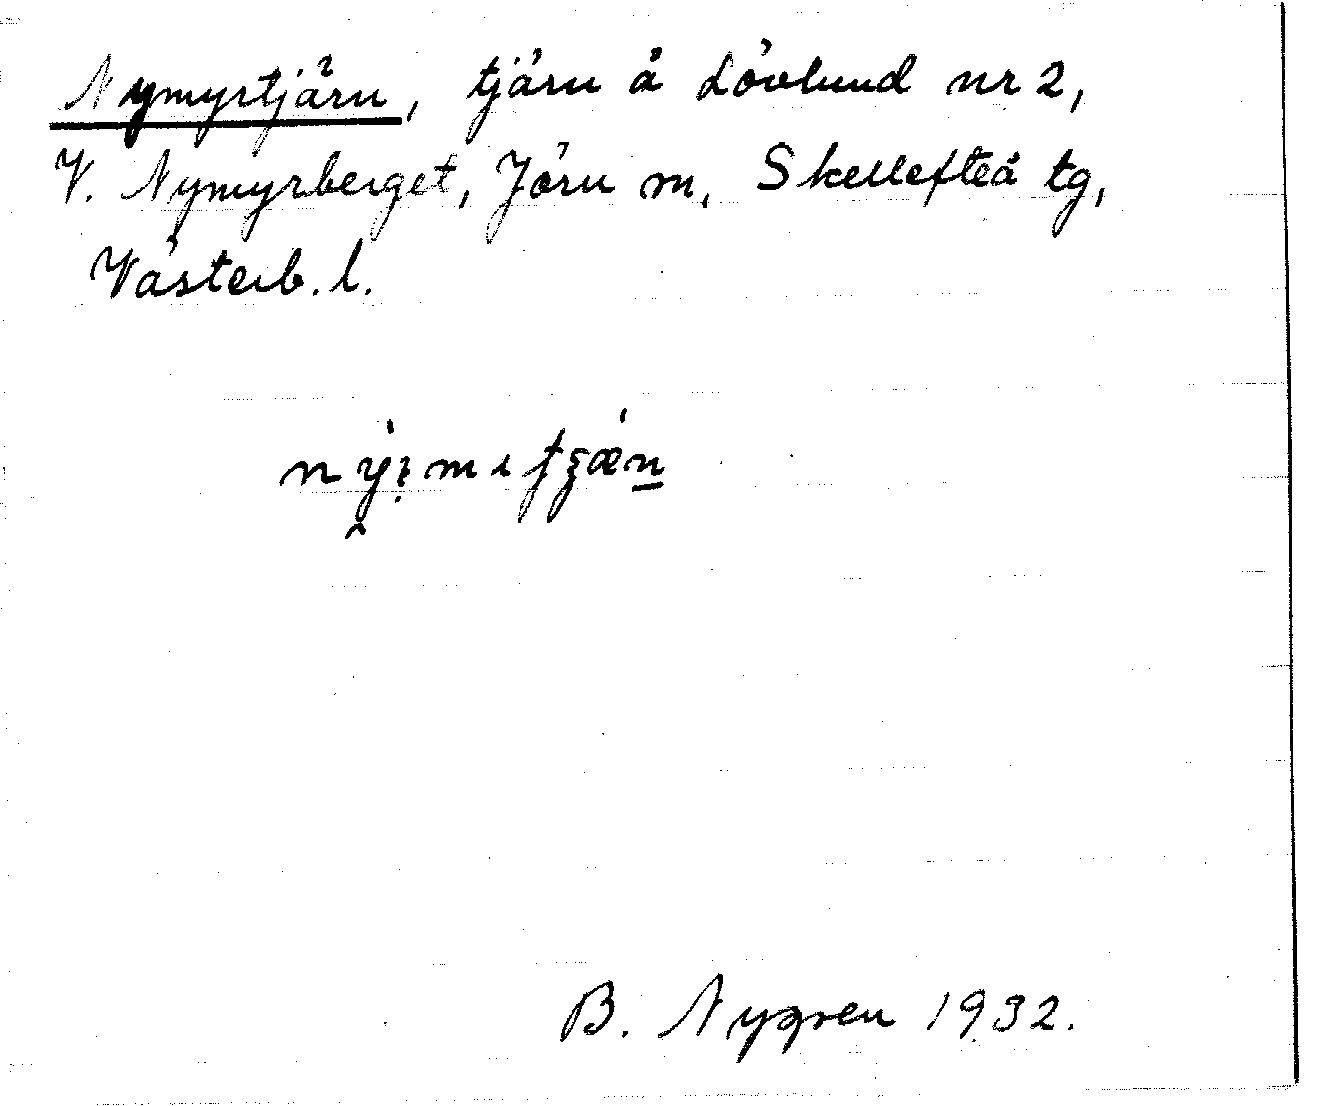 Nymyrtjärn, tjärn å Lövlund nr 2,
V. Nymyrberget, Jörn sn, Skellefteå tg,
Västerb. l.
B. Nygren 1932.